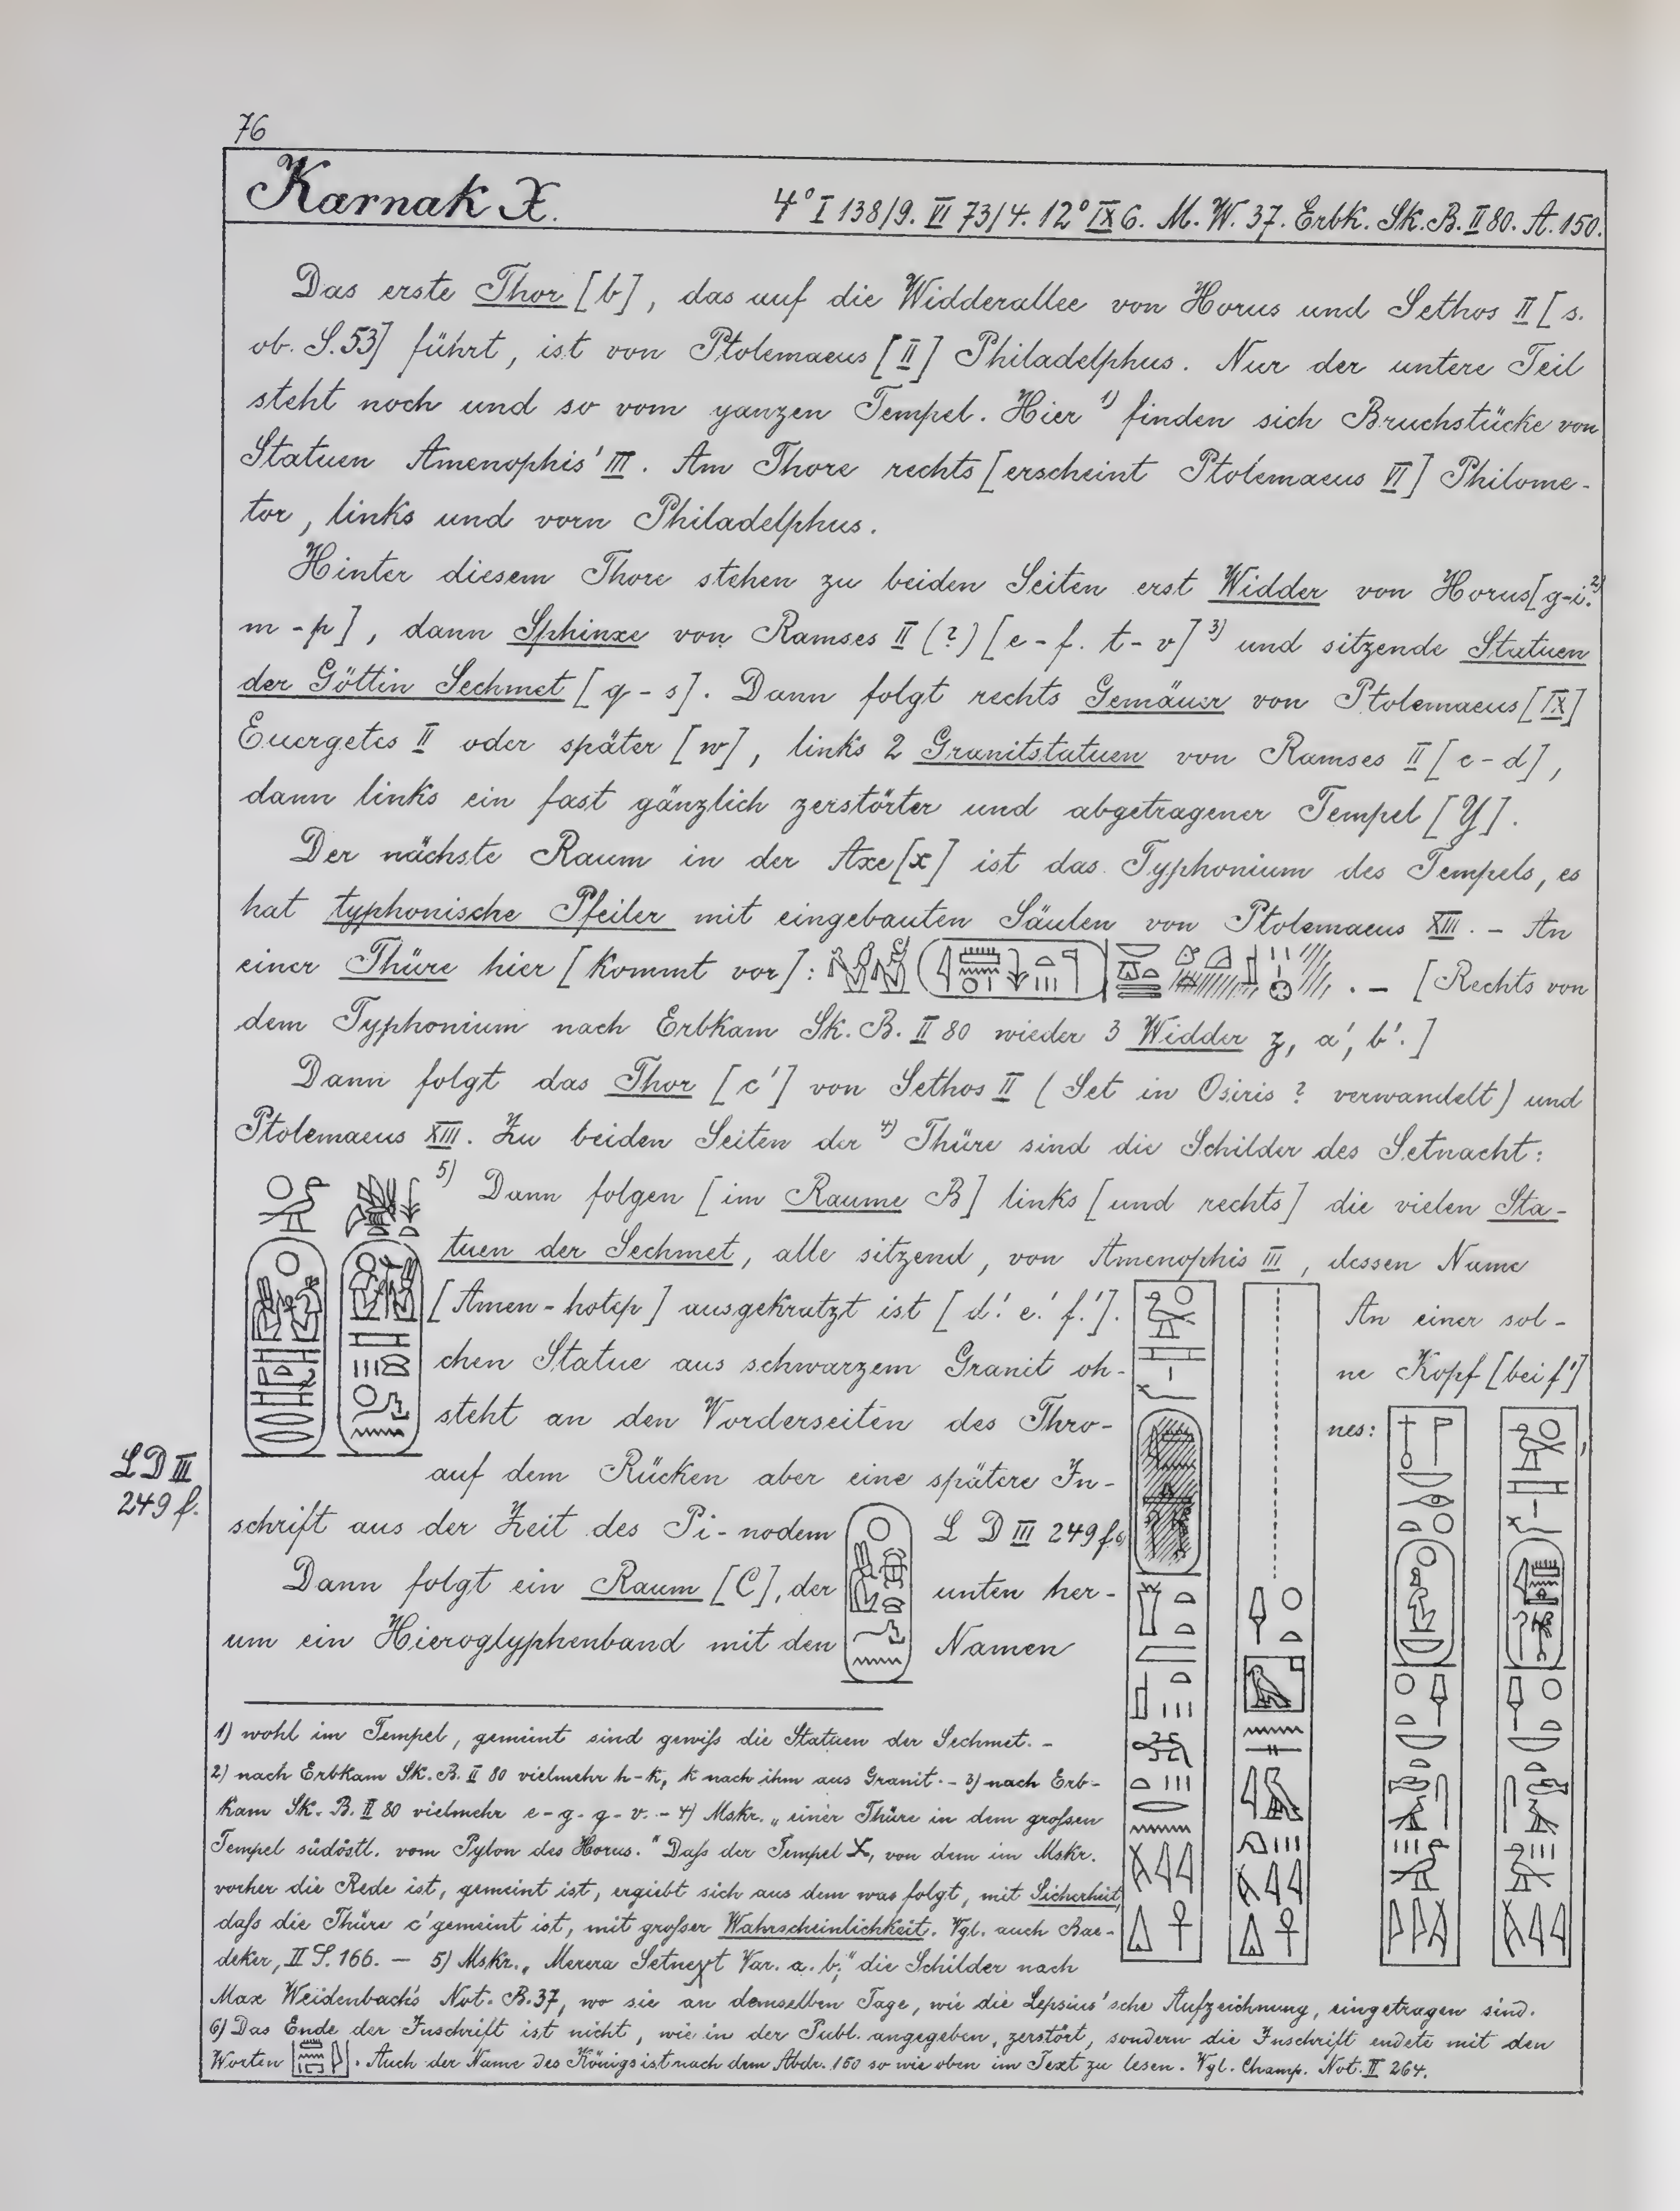 76
Karnak X. 4° I 138/9. VI 73/4. 12° IX 6. M. W. 37. Erbk. Sk. B. II 80. A. 150.
Das erste Thor [b], das auf die Widderallee von Horus und Sethos II [s.
ob. S. 53] führt, ist von Ptolemaeus [II] Philadelphus. Nur der untere Teil
steht noch und so vom ganzen Tempel. Hier 1) finden sich Bruchstücke von
Statuen Amenophis' III. Am Thore rechts [erscheint Ptolemaeus VI] Philome-
tor, links und vorn Philadelphus.
Hinter diesem Thore stehen zu beiden Seiten erst Widder von Horus [g-i. 2)
m-p], dann Sphinxe von Ramses II (?) [e-f. t-v] 3) und sitzende Statuen
der Göttin Sechmet [q-s]. Dann folgt rechts Gemäuer von Ptolemaeus [IX]
Euergetes II oder später [w], links 2 Granitstatuen von Ramses II [c-d],
dann links ein fast gänzlich zerstörter und abgetragener Tempel [Y].
Der nächste Raum in der Axe [x] ist das Typhonium des Tempels, es
hat typhonische Pfeiler mit eingebauten Säulen von Ptolemaeus XIII. – An
einer Thüre hier [kommt vor]: . – [Rechts von
dem Typhonium nach Erbkam Sk. B. II 80 wieder 3 Widder z, a', b'.]
Dann folgt das Thor [c'] von Sethos II (Set in Osiris? verwandelt) und
Ptolemaeus XIII. Zu beiden Seiten der 4) Thüre sind die Schilder des Setnacht:
5) Dann folgen [im Raume B] links [und rechts] die vielen Sta-
tuen der Sechmet, alle sitzend, von Amenophis III, dessen Name
[Amen-hotep] ausgekratzt ist [d'. e'. f'.]. An einer sol-
chen Statue aus schwarzem Granit oh- ne Kopf [bei f']
steht an den Vorderseiten des Thro- nes: ,
auf dem Rücken aber eine spätere In-
LD III
249 f.
schrift aus der Zeit des Pi-nodem L D III 249 f. 6)
Dann folgt ein Raum [C], der unten her-
um ein Hieroglyphenband mit den Namen
1) wohl im Tempel, gemeint sind gewiſs die Statuen der Sechmet. –
2) nach Erbkam Sk. B. II 80 vielmehr h-k, k nach ihm aus Granit. – 3) nach Erb-
kam Sk. B. II 80 vielmehr e-g. q-v. – 4) Mskr. „einer Thüre in dem groſsen
Tempel südöstl. vom Pylon des Horus." Daſs der Tempel X, von dem im Mskr.
vorher die Rede ist, gemeint ist, ergiebt sich aus dem was folgt, mit Sicherheit,
daſs die Thüre c' gemeint ist, mit groſser Wahrscheinlichkeit. Vgl. auch Bae-
deker, II S. 166. – 5) Mskr. „Merera Setneχt Var. a. b;" die Schilder nach
Max Weidenbach's Not. B. 37, wo sie an demselben Tage, wie die Lepsius'sche Aufzeichnung, eingetragen sind.
6) Das Ende der Inschrift ist nicht, wie in der Publ. angegeben, zerstört, sondern die Inschrift endete mit den
Worten . Auch der Name des Königs ist nach dem Abdr. 150 so wie oben im Text zu lesen. Vgl. Champ. Not. II 264.